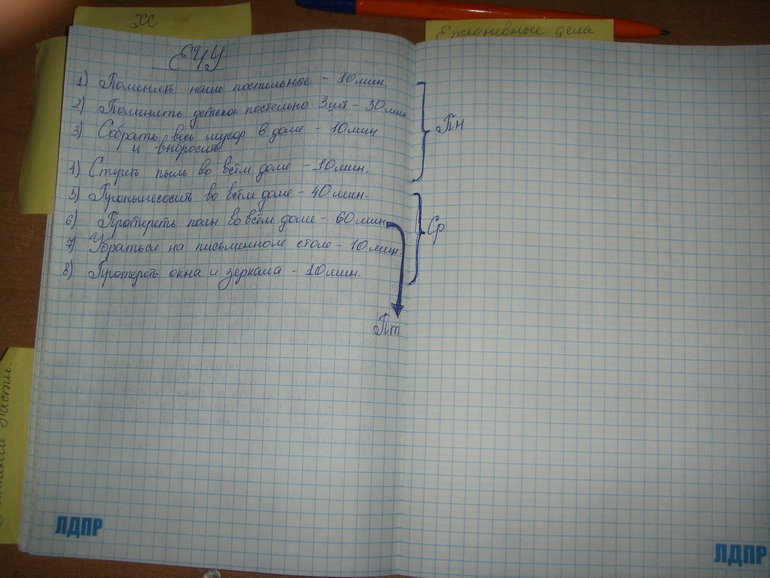 ХС
Ежедневные дела
ЕЧУ
1) Поменять наше постельное - 10 мин.
2) Поменять детское постельно 3шт - 30 мин
3) Собрать весь мусор в доме - 10 мин
и выбросить
Пн
4) Стереть пыль во всём доме - 10 мин.
5) Пропылесосить во всём доме - 40 мин.
6) Протереть полы во всём доме - 60 мин.
Ср
7) Убраться на письменном столе - 10 мин.
8) Протереть окна и зеркала - 10 мин.
Пт
ЛДПР
ЛДПР